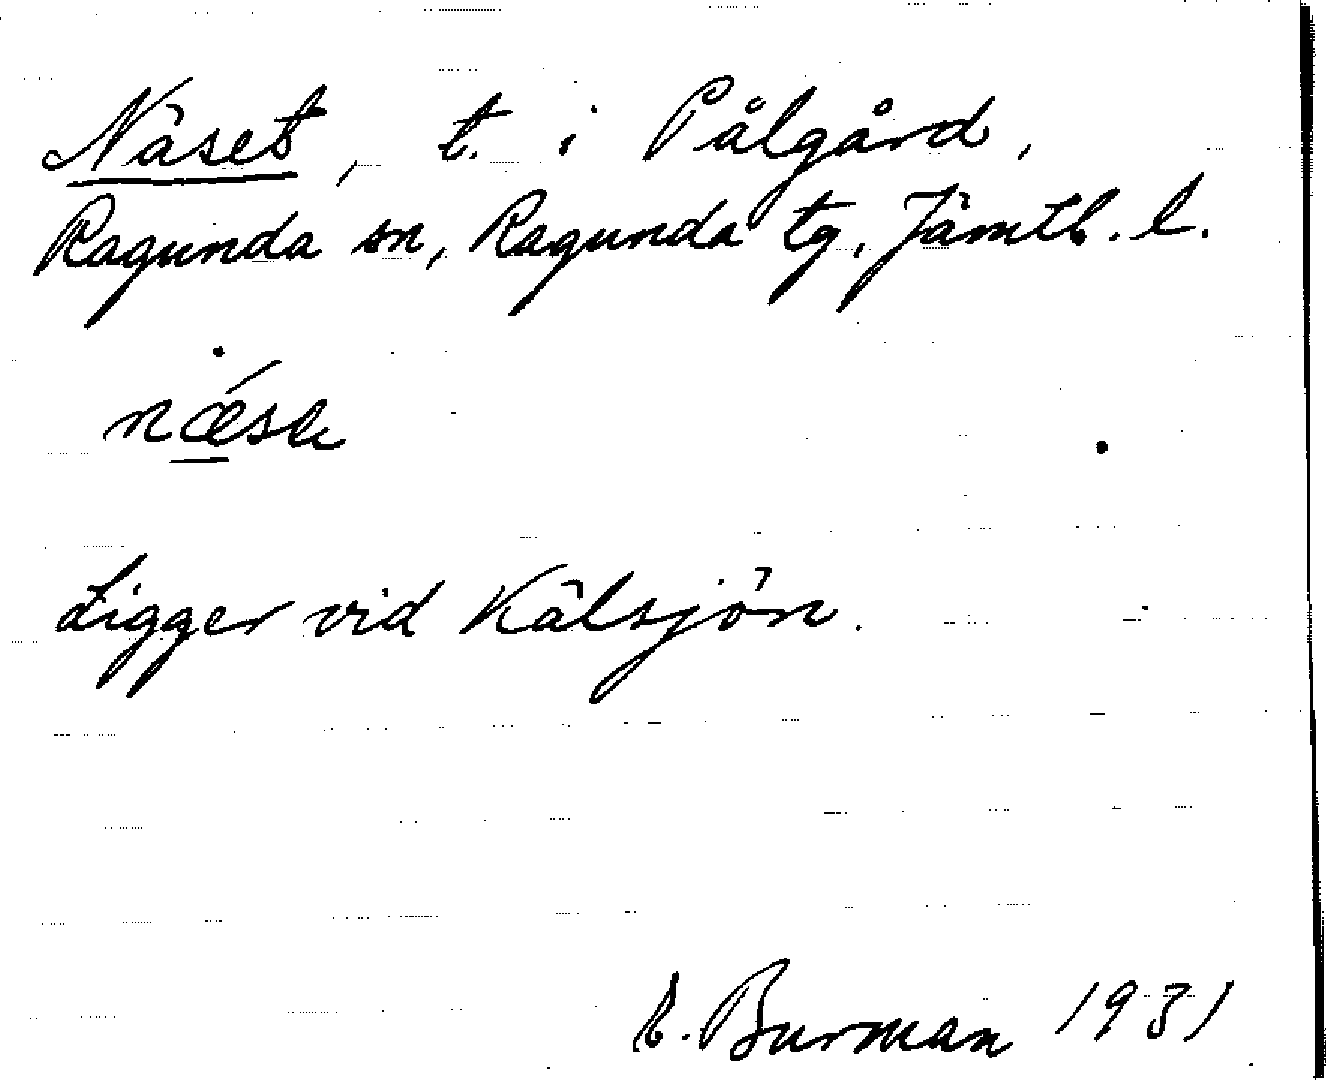 Näset, t. i Pålgård,
Ragunda sn, Ragunda tg, Jämtl. l.
nǽ̲se
Ligger vid Kälsjön.
A. Burman 1931